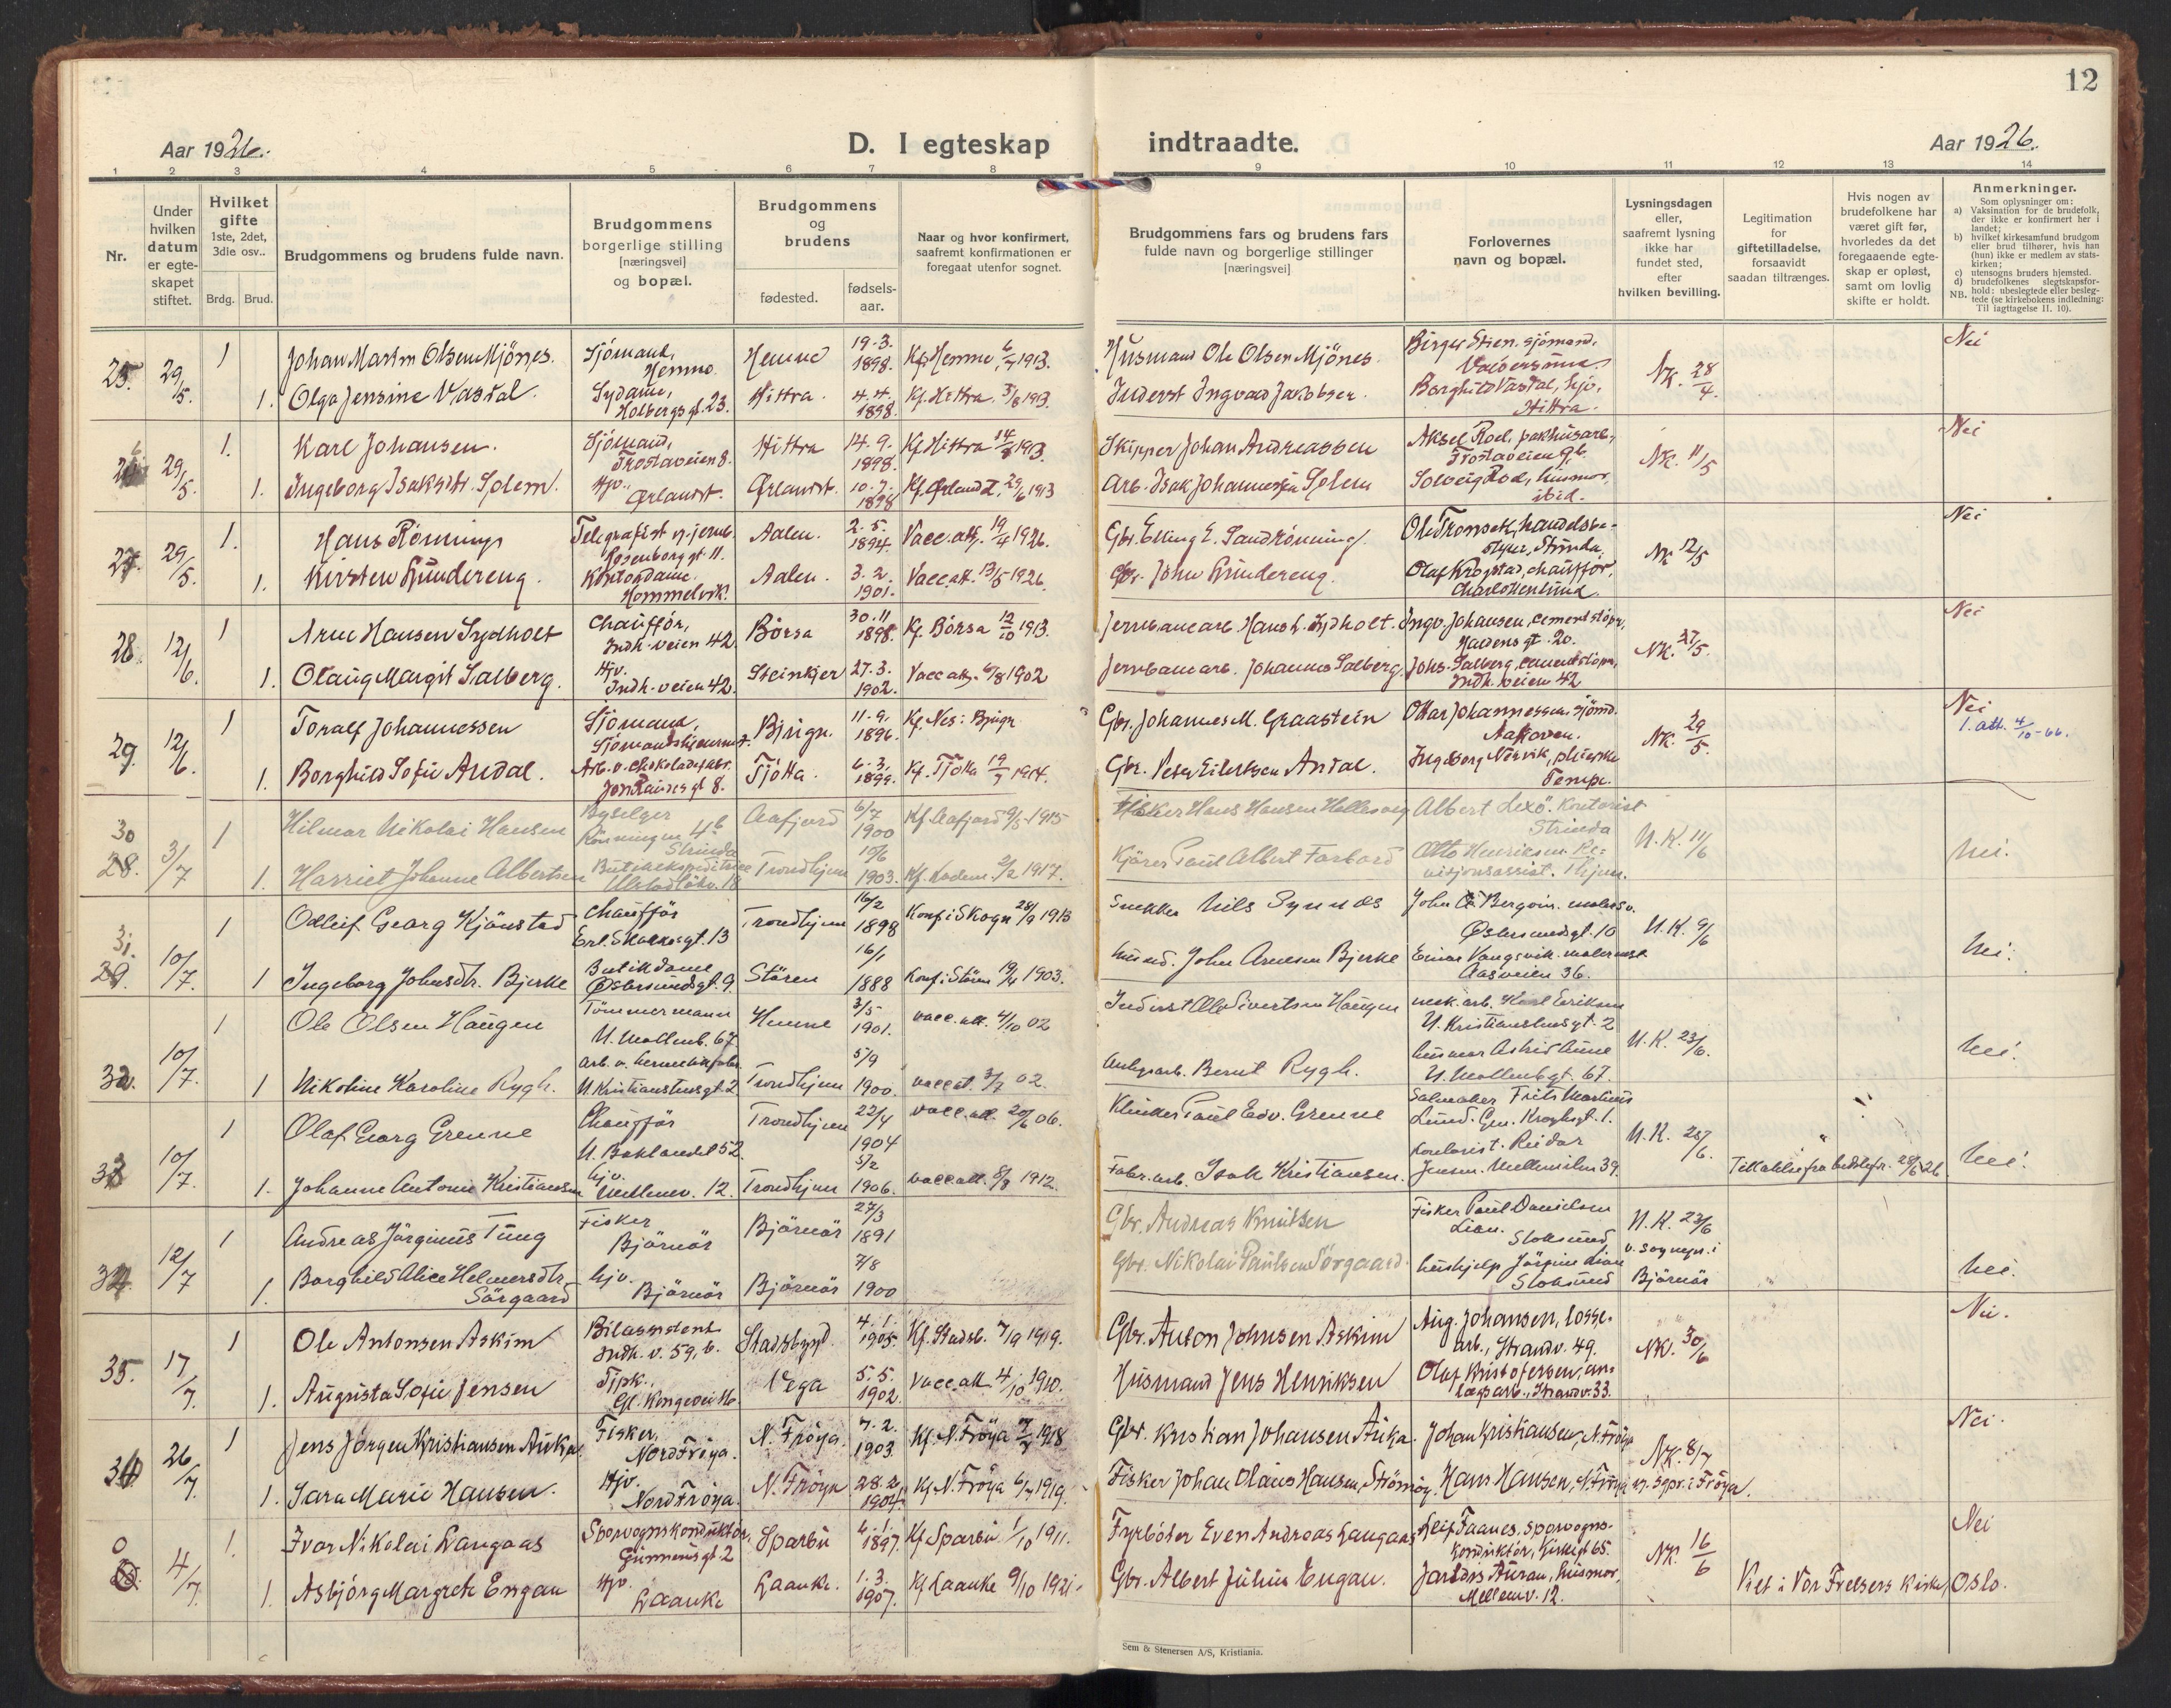 12
Aar 1926.
D. I egteskap indtraadte.
Aar 1926.
1 2 3 4 5 6 7 8 9 10 11 12 13 14
Nr.
Under hvilken datum er egteskapet stiftet.
Hvilket gifte 1ste, 2det, 3die osv..
Brdg. Brud.
Brudgommens og brudens fulde navn.
Brudgommens borgerlige stilling [næringsvei] og bopæl.
Brudgommens og brudens
fødested.
fødselsaar.
Naar og hvor konfirmert, saafremt konfirmationen er foregaat utenfor sognet.
Brudgommens fars og brudens fars fulde navn og borgerlige stillinger [næringsvei]
Forlovernes navn og bopæl.
Lysningsdagen eller, saafremt lysning ikke har fundet sted, efter hvilken bevilling.
Legitimation for giftetilladelse, forsaavidt saadan tiltrænges.
Hvis nogen av brudefolkene har været gift før, hvorledes da det foregaaende egteskap er opløst, samt om lovlig skifte er holdt.
Anmerkninger.
Som oplysninger om:
a) Vaksination for de brudefolk, der ikke er konfirmert her i landet;
b) hvilket kirkesamfund brudgom eller brud tilhører, hvis han (hun) ikke er medlem av statskirken;
c) utensogns bruders hjemsted.
d) brudefolkenes slegtskapsforhold: ubeslegtede eller beslegtede (se kirkebokens indledning: Til Iagttagelse II. 10).
NB.
25. 29/5. 1 Johan Martin Olsen Mjönes. Sjömand, Hemne. Hemne 19.3. 1898. Kf. Hemne 1913. Husmand Ole Olsen Mjönes. Birger Stien, sjömand. NK. 28/4. Nei
1. Olga Jensine Vastal. Sydame, Holbergs gt. 23. Hittra. 4.4. 1898. Kf. Hittra 3/8 1913. Inderst Ingvald Jakobsen. Borghild Vastal, hjv. Hittra.
26 29/5. 1. Karl Johansen. Sjömand, Frostaveien 8. Hittra 14.9. 1898. Kf. Hittra 1913. Skipper Johan Andreassen Aksel Roel, pakhusarb, Frostaveien 9b. NK. 11/5 Nei
1. Ingeborg Isaksdtr. Solem. Hjv. Ørlandet. Ørlandet. 10.7. 1898 Kf. Ørlandet, 29/6 1913 Arb. Isak Johannesen Solem Solveig Roel, husmor, ibid.
27. 29/5. 1. Hans Rønning Telegrafist v. jernb. Rosenborg gt. 11. Aalen. 2.5. 1894. Vacc.att. 19/4 1926. Gbr. Elling E. Sandrönning. Ole Tronset, handelsbe-styrer, Strinda. NK 12/5 Nei
1. Kirsten Grindereng. Kontordame Hommelvik. Aalen. 3.2. 1901. Vacc.att. 13/5-1926. Gbr. John Grindereng. Olaf Krogstad, chauffør, Charlottenlund.
28. 12/6. 1 Arne Hansen Sydholt Chauffør, Indh.veien 42. Börsa 30.11. 1898. Kf. Börsa 12/10 1913. Jernbanearb. Hans L. Sydholt. Ingv. Johansen, cementstöper, NK. 27/5. Nei
1. Olaug Margit Salberg. Hjv. Indh.-veien 42. Steinkjer 27.3. 1902. Vacc att. 6/8 1902 Jernbanearb. Johannes Salberg. Johs. Salberg, cementstöper, Indh.veien 42
29. 12/6. 1 Toralf Johannessen Sjömand, Bjugn. 11.9. 1896. Kf. Nes: Bjugn Gbr. Johannes M. Graastein Ottar Johannessen, sjömd. NK. 29/5. Nei 1. att. 4/10-66.
1. Borghild Sofie Andal. Arb. v. chokoladefabr. Tjötta. 6.3. 1899. Kf. Tjötta 1914. Gbr. Peter Eilertsen Andal. Ingeborg Nervik, pleierske Tempe.
30 28. 3/7 1 Hilmar Nikolai Hansen Byselger Rönningen 4b Strinda Aafjord 6/7 1900 Kf. Aafjord 9/5-1915 Fisker Hans Hansen Hellesvag Albert Lexö. Kontorist Strinda N.K. 11/6 Nei.
1. Harriet Johanne Albertsen Butikekspeditrice Trondhjem 10/6 1903. Kf. Ladem. 2/2 1917. Kjörer Paul Albert Forbord Otto Henriksen Re-visjonsassist. Thjem.
31. 29. 10/7 1 Odleif Georg Kjönstad Chauffør Erl. Skakkesgt. 13 Trondhjem 16/2 1898 Konf i Skogn 28/9 1913 Snekker Nils Synnes John Bergvin. malersv. Østersundsgt. 10 N.K. 9/6
1 Ingeborg Johnsdtr. Bjerke Butikdame Østersundsgt. 9. Stören 16/1 1888 Konf. i Stören 19/4 1903. Husmd. John Arnesen Bjerke Einar Vangsvik. malermest. Aasveien 36. Nei.
32. 10/7. 1 Ole Olsen Haugen Tömmermann N. Mollenb. 67. Hemne 3/5 1901. vacc. att. 4/10 02 Inderst Ole Sivertsen Haugen mek. arb. Karl Eriksen N. Kristianstensgt. 2 N.K. 23/6. Nei.
1 Nikoline Karoline Rygh. N. Kristianstensgt 2 Trondhjem 5/9 1900. vacc at. 3/7 02. Bernt Rygh. husmor Astrid Aune N. Mollenbgt. 67.
33 10/7. 1 Olaf Georg Grenne Chauffør N. Baklandet 52. Trondhjem 22/4 1904 vacc. att. 20/6 06. Klinker Paul Edv. Grenne Salmaker Frits Martinus Lund. Gen. Kroghsgt. 1. N.K. 25/6.
1. Johanne Antonie Kristiansen hjv. Mellemv. 12. Trondhjem 5/2 1906. vacc att. 8/8 1912. Fabr. arb. Isak Kristiansen. Kontorist. Reidar Jensen. Mellemilen 39. Tilladelse fra bidskfgd. 28/6 26 Nei.
34. 12/7 1 Andreas Jörginus Tung Fisker Björnör Björnör 27/3 1891 Gbr. Andreas Knutsen Fisker Paul Danielsen Lian. Stoksund N.K. 23/6 v. sognepr. i Björnör
1. Borghild Alice Helmersdtr. Sörgaard hjv. Björnör Björnör 7/8 1900 Gbr. Nikolai Paulsen Sörgaard. hushjelp Jörgine Lian Stoksund Nei.
35. 17/7. 1 Ole Antonsen Askim Bilassistent Indh. v. 59, b. Stadsbygd 4.1. 1905. Kf. Stadsb. 7/9 1919. Gbr. Anton Johnsen Askim Aug. Johansen, losse-arb., Strandv. 49. NK. 30/6 Nei.
1. Augusta Sofie Jensen Tjpk., Gl. Kongevei 16 Vega 5.5. 1902. Vacc.att. 4/10 1910. Husmand Jens Henriksen Olaf Kristofersen, an-lægsarb., Strandv. 33.
36 26/7. 1 Jens Jörgen Kristiansen Auka Fisker, Nord Fröya. N. Fröya. 7.2. 1903. Kf. N. Fröya 1918 Gbr. Kristian Johansen Auka. Johan Kristiansen, N. Fröya NK. 8/7 Nei.
1. Sara Marie Hansen. Hjv. Nord Fröya. N. Fröya 28.2. 1904. Kf. N. Fröya 6/7 1919. Fisker Johan Olaus Hansen, Strömöy. Hans Hansen, N. Fröya v. Sgpr. i Fröya.
0 4/7. 1. Ivar Nikolai Langaas Sporvognskonduktör, Gunnerus gt. 2 Sparbu 6.1. 1897. Kf. Sparbu 1/10 1911. Fyrböter Even Andreas Langaas Leif Faanes, sporvogns-konduktör, Kirkegt 65. NK. 16/6 Nei
1. Asbjörg Margrete Engan Hjv. Laanke Laanke. 1.3. 1907. Kf. Laanke 9/10 1921. Gbr. Albert Julius Engan. husmor, Mellemv. 12. Viet i Vor Frelsers Kirke, Oslo.
Sem & Stenersen A/S, Kristiania.